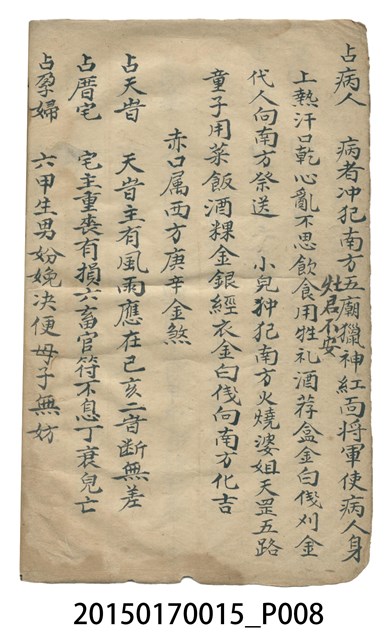 占病人　病者冲犯南方五廟獵神紅面將軍使病人身
灶君不安
上熱汗口乾心亂不思飲食用牲礼酒荐盒金白伐刈金
代人向南方祭送　小兒冲犯南方火燒婆姐天罡五路
童子用菜飯酒粿金銀經衣金白伐向南方化吉
赤口属西方庚辛金煞
占天旹　天旹主有風雨應在己亥二旹断無差
占厝宅　宅主重喪有損六畜官符不息丁衰兒亡
占孕婦　六甲生男妢娩决便母子無妨
20150170015_P008